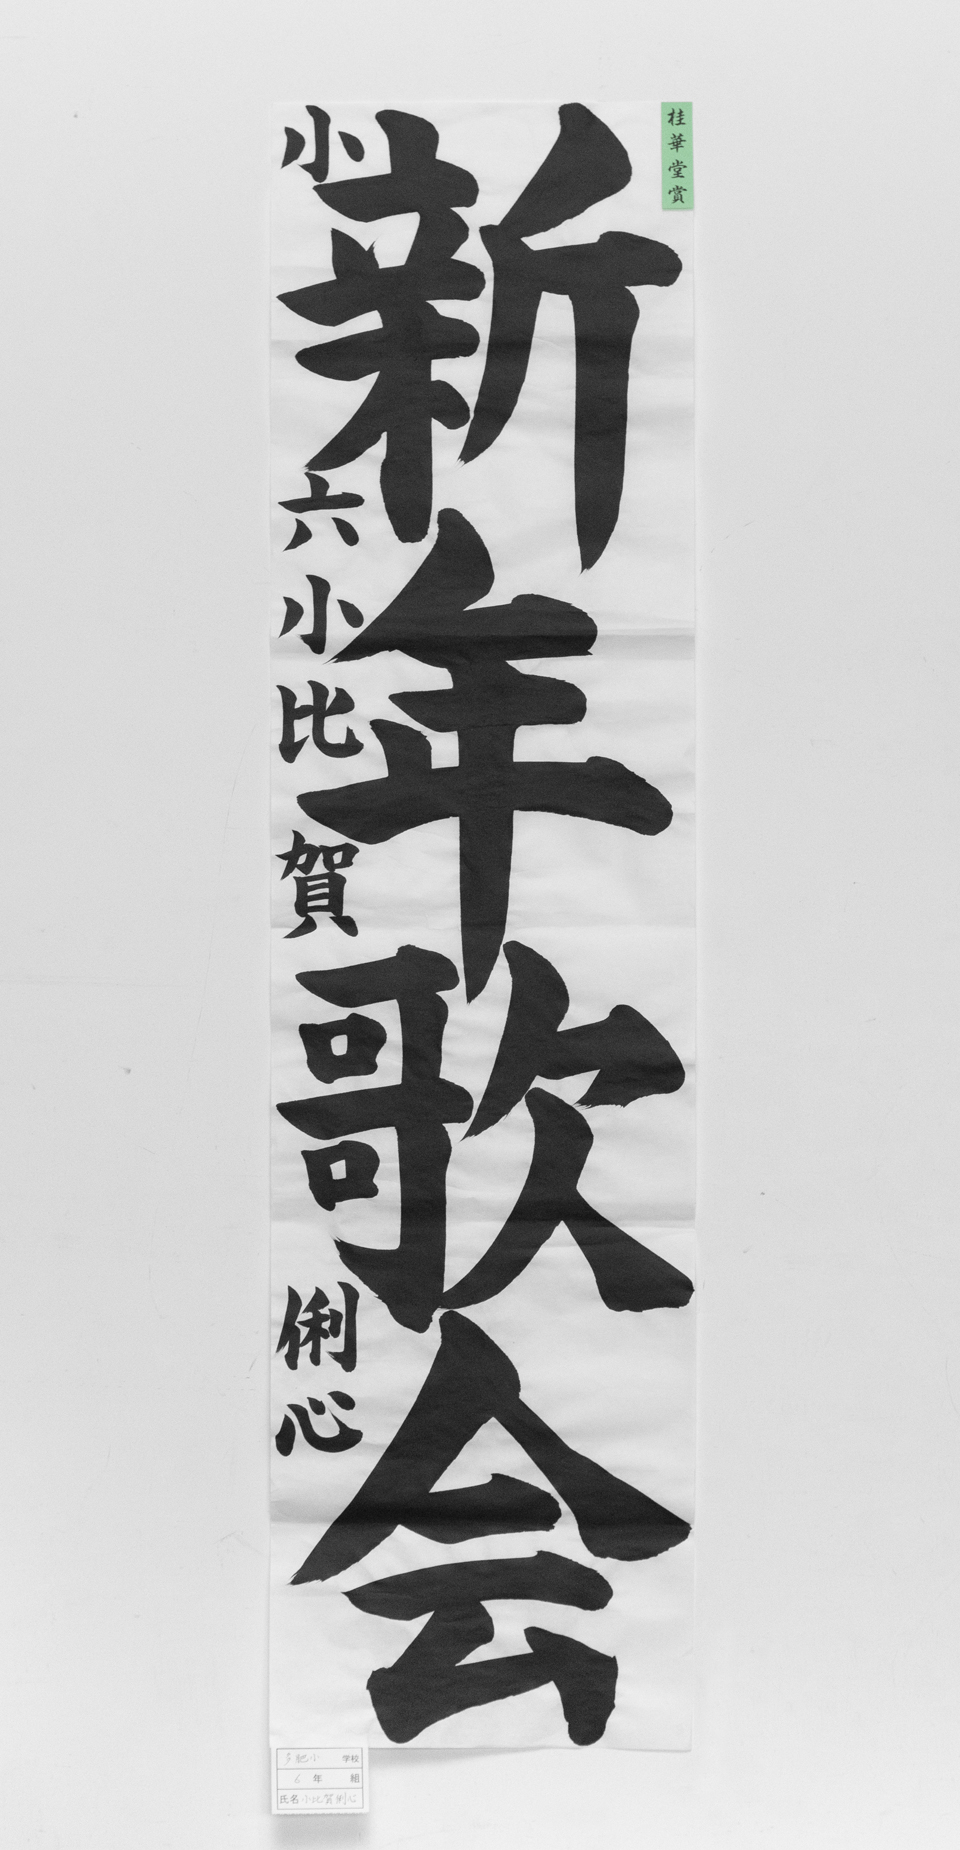 桂華堂賞
新年歌会
小六 小比賀俐心
多肥小 学校
6 年 組
氏名 小比賀俐心